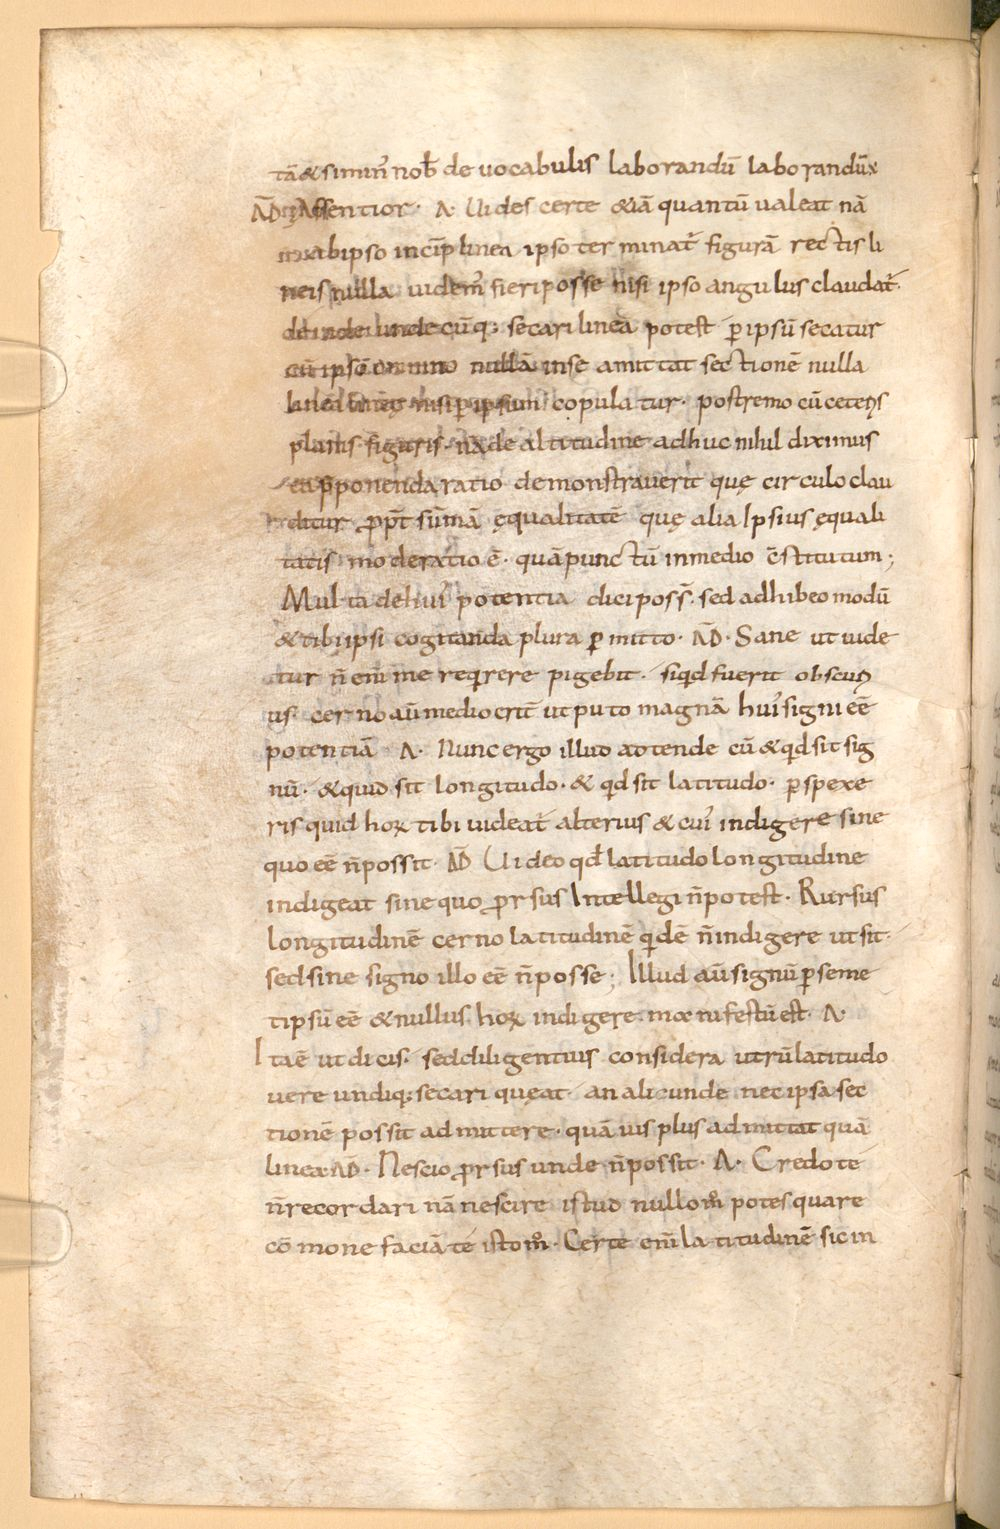 tā & si minꝰ nob̄ de uocabulis laborandū laborandūx
AD̄ Assentior · A · Uides certe &iā quantū ualeat nā
ab ipso incip̄ linea ipso terminat᷑ figurā rectis li
neis nulla uidem᷑ fieri posse nisi ipso angulus claudat᷑ ·
deinde undecūq; secari linea potest ꝑ ipsū secatur
cū ipsū omnino nullā in se amittat sectionē nulla
linea lineę nisi ꝑ ipsum copulatur · postremo cū ceteris
planis figuris · nā de altitudine adhuc nihil diximus
ea p̄ponenda ratio demonstrauerit quę circulo clau
ditur ꝓpt̄ sūmā ęqualitatē quę alia Ipsius ęquali
tatis moderatio ē · quā punctū in medio c̄stitutum ;
Multa de huiꝰ potentia dici poss᷑ · sed adhibeo modū
& tibi ipsi cogitanda plura ꝑmitto · AD̄ · Sane ut uide
tur n̄ enī me reqͥrere pigebit · siqͥd fuerit obscuri
us · cerno aū mediocrit̄ ut puto magnā huiꝰ signi eē
potentiā A · Nunc ergo illud adtende cū & qͥd sit sig
nū · & quid sit longitudo · & qͥd sit latitudo · ꝑspexe
ris quid hoꝝ tibi uideat᷑ alterius & cuiꝰ indigere sine
quo eē n̄ possit · AD̄ Uideo qd̄ latitudo longitudine
indigeat sine quo ꝓrsus Intellegi n̄ potest · Rursus
longitudinē cerno latitudinē qͥdē n̄ indigere ut sit ·
sed sine signo illo eē n̄ posse ; Illud aū signū ꝑ seme
tipsū eē & nullus hoꝝ indigere manifestū est · A ·
Ita ē ut dicis · sed diligentius considera utrū latitudo
uere undiq; secari quęat · an alicunde nec ipsa sec
tionē possit admittere · quā uis plus admittat quā
linea · AD̄ · Nescio ꝓrsus unde n̄ possit · A · Credo te
n̄ recordari nā nescire istud nullom̊ potes quare
cōmonefaciā te istom̊ · Certe enī latitudinē sic in